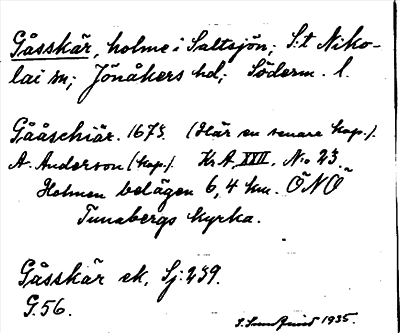 Gåsskär, holme i Saltsjön; S:t Niko-
lai sn; Jönåkers hd; Söderm. l.
Gååschiär. 1678. (Här en senare kop.).
A. Anderson (kop.). KrA, XXII. N:o 23.
Holmen belägen 6,4 km. ÖNÖ
Tunabergs kyrka.
Gåsskär ek, Sj: 239.
G. 56.
1935.